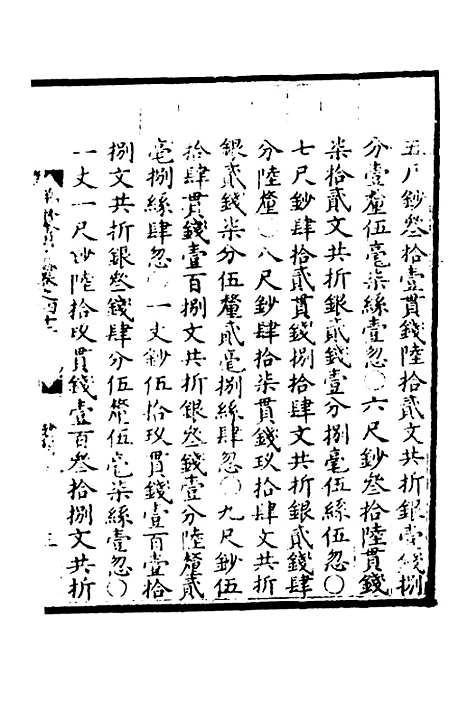 五尺鈔叄拾壹貫錢陸拾貳文共折銀壹錢捌
分壹釐伍毫柒絲壹忽○六尺鈔叄拾陸貫錢
柒拾貳文共折銀貳錢壹分捌毫伍絲伍忽○
七尺鈔肆拾貳貫錢捌拾肆文共折銀貳錢肆
分陸釐○八尺鈔肆拾柒貫錢玖拾肆文共折
銀貳錢柒分伍釐貳毫捌絲肆忽○九尺鈔伍
拾肆貫錢壹百捌文共折銀叄錢壹分陸釐貳
毫捌絲肆忽○一丈鈔伍拾玖貫錢壹百壹拾
捌文共折銀叄錢肆分伍釐伍毫柒絲壹忽○
一丈一尺鈔陸拾玖貫錢壹百叄拾捌文共折
三